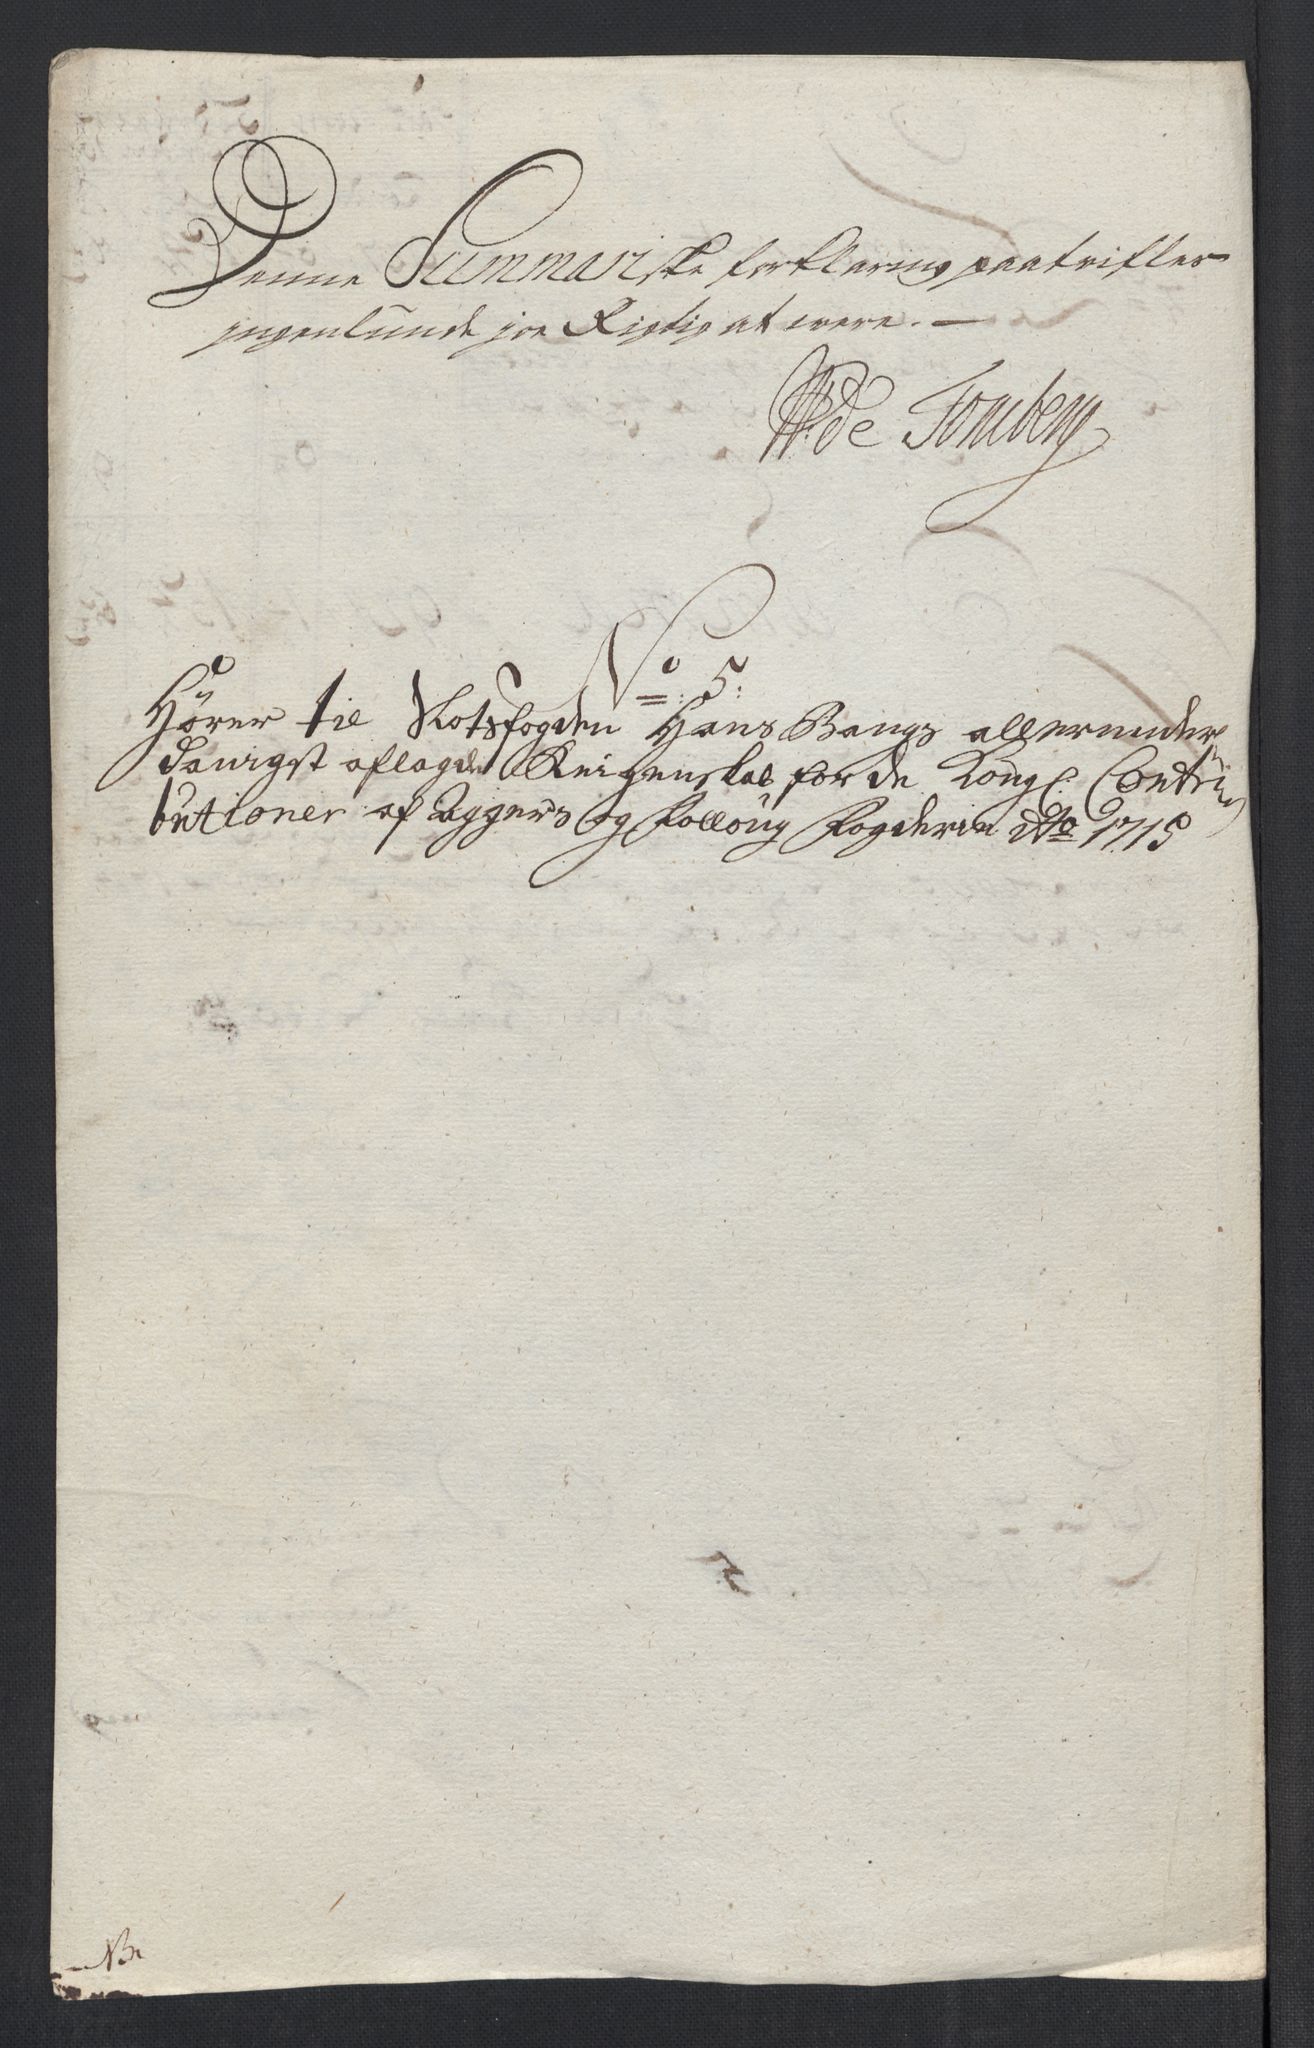 Denne Summariske forklaring paatrifler
ingenlunde joe Rigtig at were. —
WDe Tonsberg
No 5:
Hører til Slotsfogden Hans Bangs allerunder
danigst aflagde Reigenskab for de Kongl. Contri
butioner af Aggers og Folloug Fogderie Ao 1715
NB